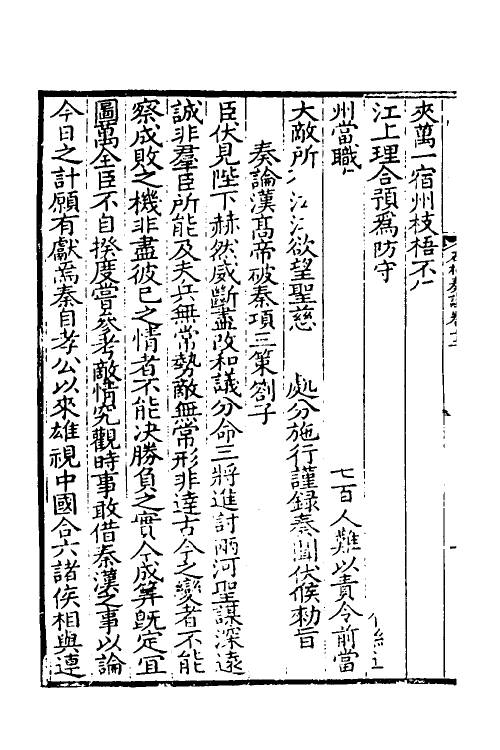 夾萬一宿州枝梧不
江上理合預爲防守
州當職 七百人難以責令前當
大敵所 江欲望聖慈 處分施行謹録奏聞伏候勑旨
奏論漢髙帝破秦項三策劄子
臣伏見陛下赫然威斷盡改和議分命三將進討兩河聖謀深遠
誠非羣臣所能及夫兵無常勢敵無常形非達古今之變者不能
察成敗之機非盡彼已之情者不能決勝負之實今成算旣定宜
圖萬全臣不自揆度嘗參考敵情究觀時事敢借秦漢之事以論
今日之計願有獻焉秦自孝公以來雄視中國合六諸侯相與連